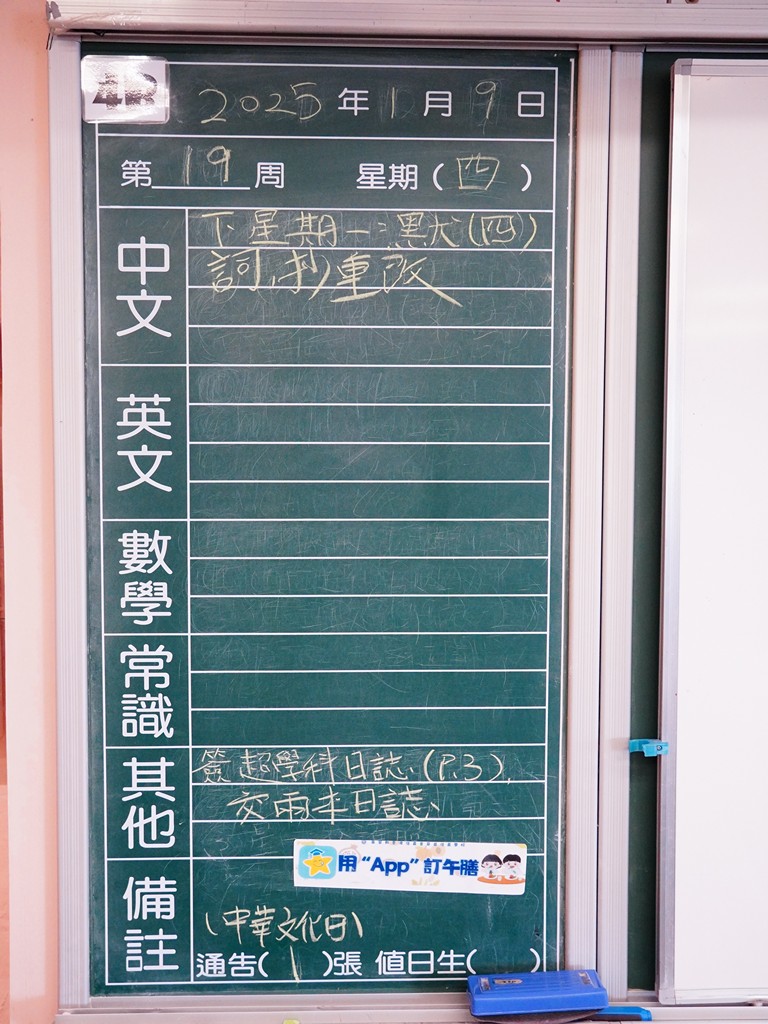 4B
2025年1月9日
第19周 星期(四)
中文
下星期一:默犬(四)
詞,抄重改
英文
數學
常識
其他
簽超學科日誌、(P.3),
交兩本日誌、
用“App”訂午膳
備註
(中華文化日)
通告(1)張 值日生( )